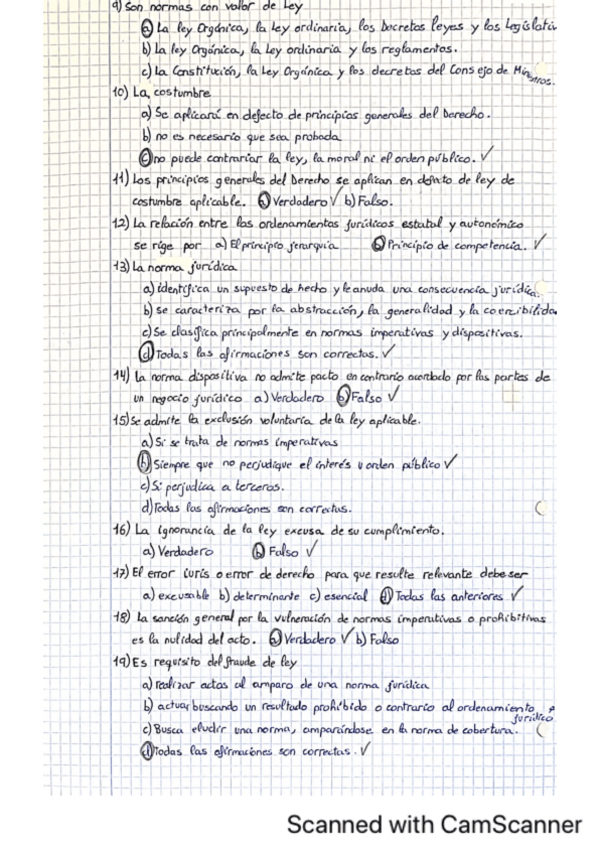 9) Son normas con valor de Ley
a) La ley Orgánica, la ley ordinaria, los Decretos leyes y los Legislativ
b) La ley Orgánica, la Ley ordinaria y los reglamentos.
c) La Constitución, la Ley Orgánica y los decretos del Consejo de Ministros.
10) La costumbre
a) Se aplicará en defecto de principios generales del Derecho.
b) no es necesario que sea probada
c) no puede contrariar la ley, la moral ni el orden público. ✓
11) Los principios generales del Derecho se aplican en defecto de ley de
costumbre aplicable. a) Verdadero ✓ b) Falso.
12) La relación entre los ordenamientos jurídicos estatal y autonómico
se rige por a) El principio jerarquía b) Principio de competencia. ✓
13) La norma jurídica
a) identifica un supuesto de hecho y le anuda una consecuencia jurídica.
b) se caracteriza por la abstracción, la generalidad y la coercibilida
c) Se clasifica principalmente en normas imperativas y dispositivas.
d) Todas las afirmaciones son correctas. ✓
14) La norma dispositiva no admite pacto en contrario acordado por las partes de
un negocio jurídico a) Verdadero b) Falso ✓
15) Se admite la exclusión voluntaria de la ley aplicable.
a) Si se trata de normas imperativas
b) Siempre que no perjudique el interés u orden público ✓
c) Si perjudica a terceros.
d) Todas las afirmaciones son correctas.
16) La ignorancia de la ley excusa de su cumplimiento.
a) Verdadero b) Falso ✓
17) El error iuris o error de derecho para que resulte relevante debe ser
a) excusable b) determinante c) esencial d) Todas las anteriores ✓
18) La sanción general por la vulneración de normas imperativas o prohibitivas
es la nulidad del acto. a) Verdadero ✓ b) Falso
19) Es requisito del fraude de ley
a) realizar actos al amparo de una norma jurídica
b) actuar buscando un resultado prohibido o contrario al ordenamiento jurídico
c) Busca eludir una norma, amparándose en la norma de cobertura.
d) Todas las afirmaciones son correctas. ✓
Scanned with CamScanner